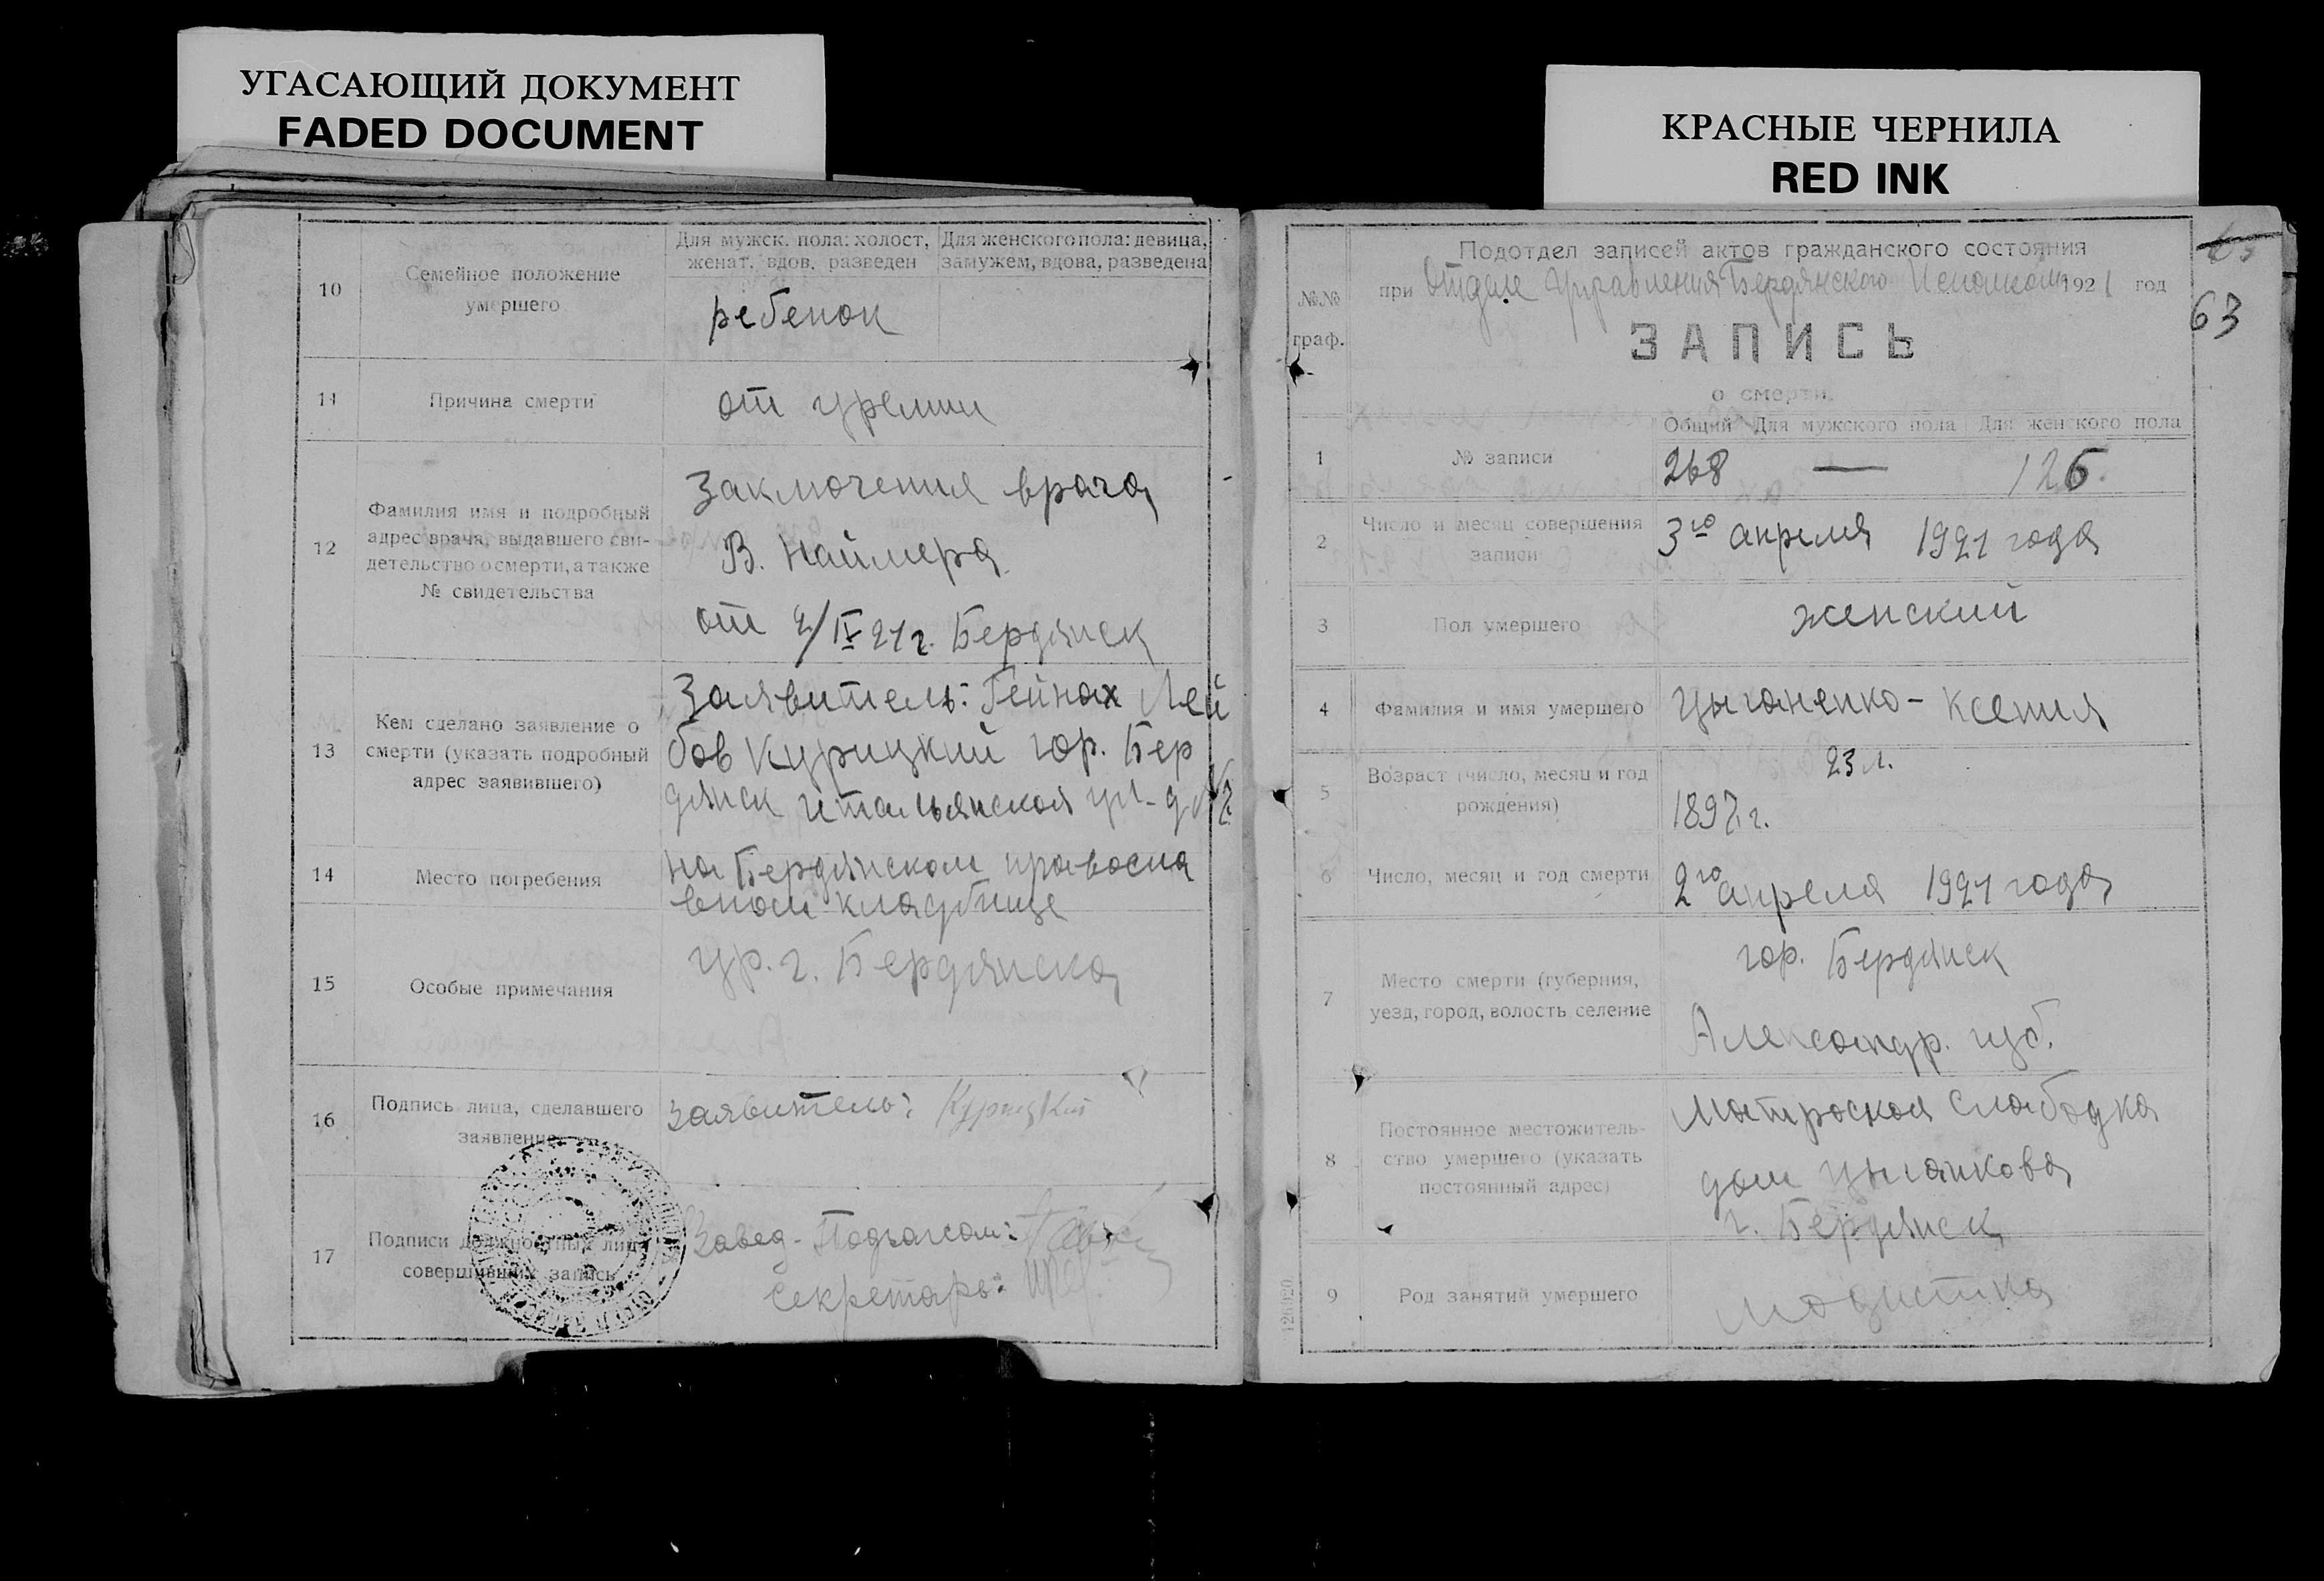 УГАСАЮЩИЙ ДОКУМЕНТ
FADED DOCUMENT
КРАСНЫЕ ЧЕРНИЛА
RED INK
10
Семейное положение
умершего
Для мужск. пола: холост,
женат, вдов, разведен
Для женского пола: девица,
замужем, вдова, разведена
ребенок
11
Причина смерти
от уремии
12
Фамилия имя и подробный
адрес врача, выдавшего сви-
детельство о смерти, а также
№ свидетельства
Заключения врача
В. Наймера
от 2/IV 21 г. Бердянск
13
Кем сделано заявление о
смерти (указать подробный
адрес заявившего)
Заявитель: Гейнах Лей
бов Курицкий гор. Бер
дянск Итальянская ул-
14
Место погребения
на Бердянском правосла
вном кладбище
15
Особые примечания
ур. г. Бердянска
16
Подпись лица, сделавшего
заявление
заявитель: Курицкий
17
Подписи должностных лиц
совершивших запись
Завед-Подзагсом:
Секретарь:
63
63
№№
граф.
Подотдел записей актов гражданского состояния
при Отделе Управления Бердянского Исполкома 1921 год
ЗАПИСЬ
о смерти.
Общий Для мужского пола Для женского пола
1
№ записи
268 — 126.
2
Число и месяц совершения
записи
3го апреля 1921 года
3
Пол умершего
женский
4
Фамилия и имя умершего
Цыганенко - Ксения
5
Возраст (число, месяц и год
рождения)
23 л.
1897 г.
6
Число, месяц и год смерти
2го апреля 1921 года
7
Место смерти (губерния,
уезд, город, волость, селение
гор. Бердянск
Александр. губ.
8
Постоянное местожитель-
ство умершего (указать
постоянный адрес)
Матроская Слабодка
дом Цыганкова
г. Бердянск
9
Род занятий умершего
модистка
126920